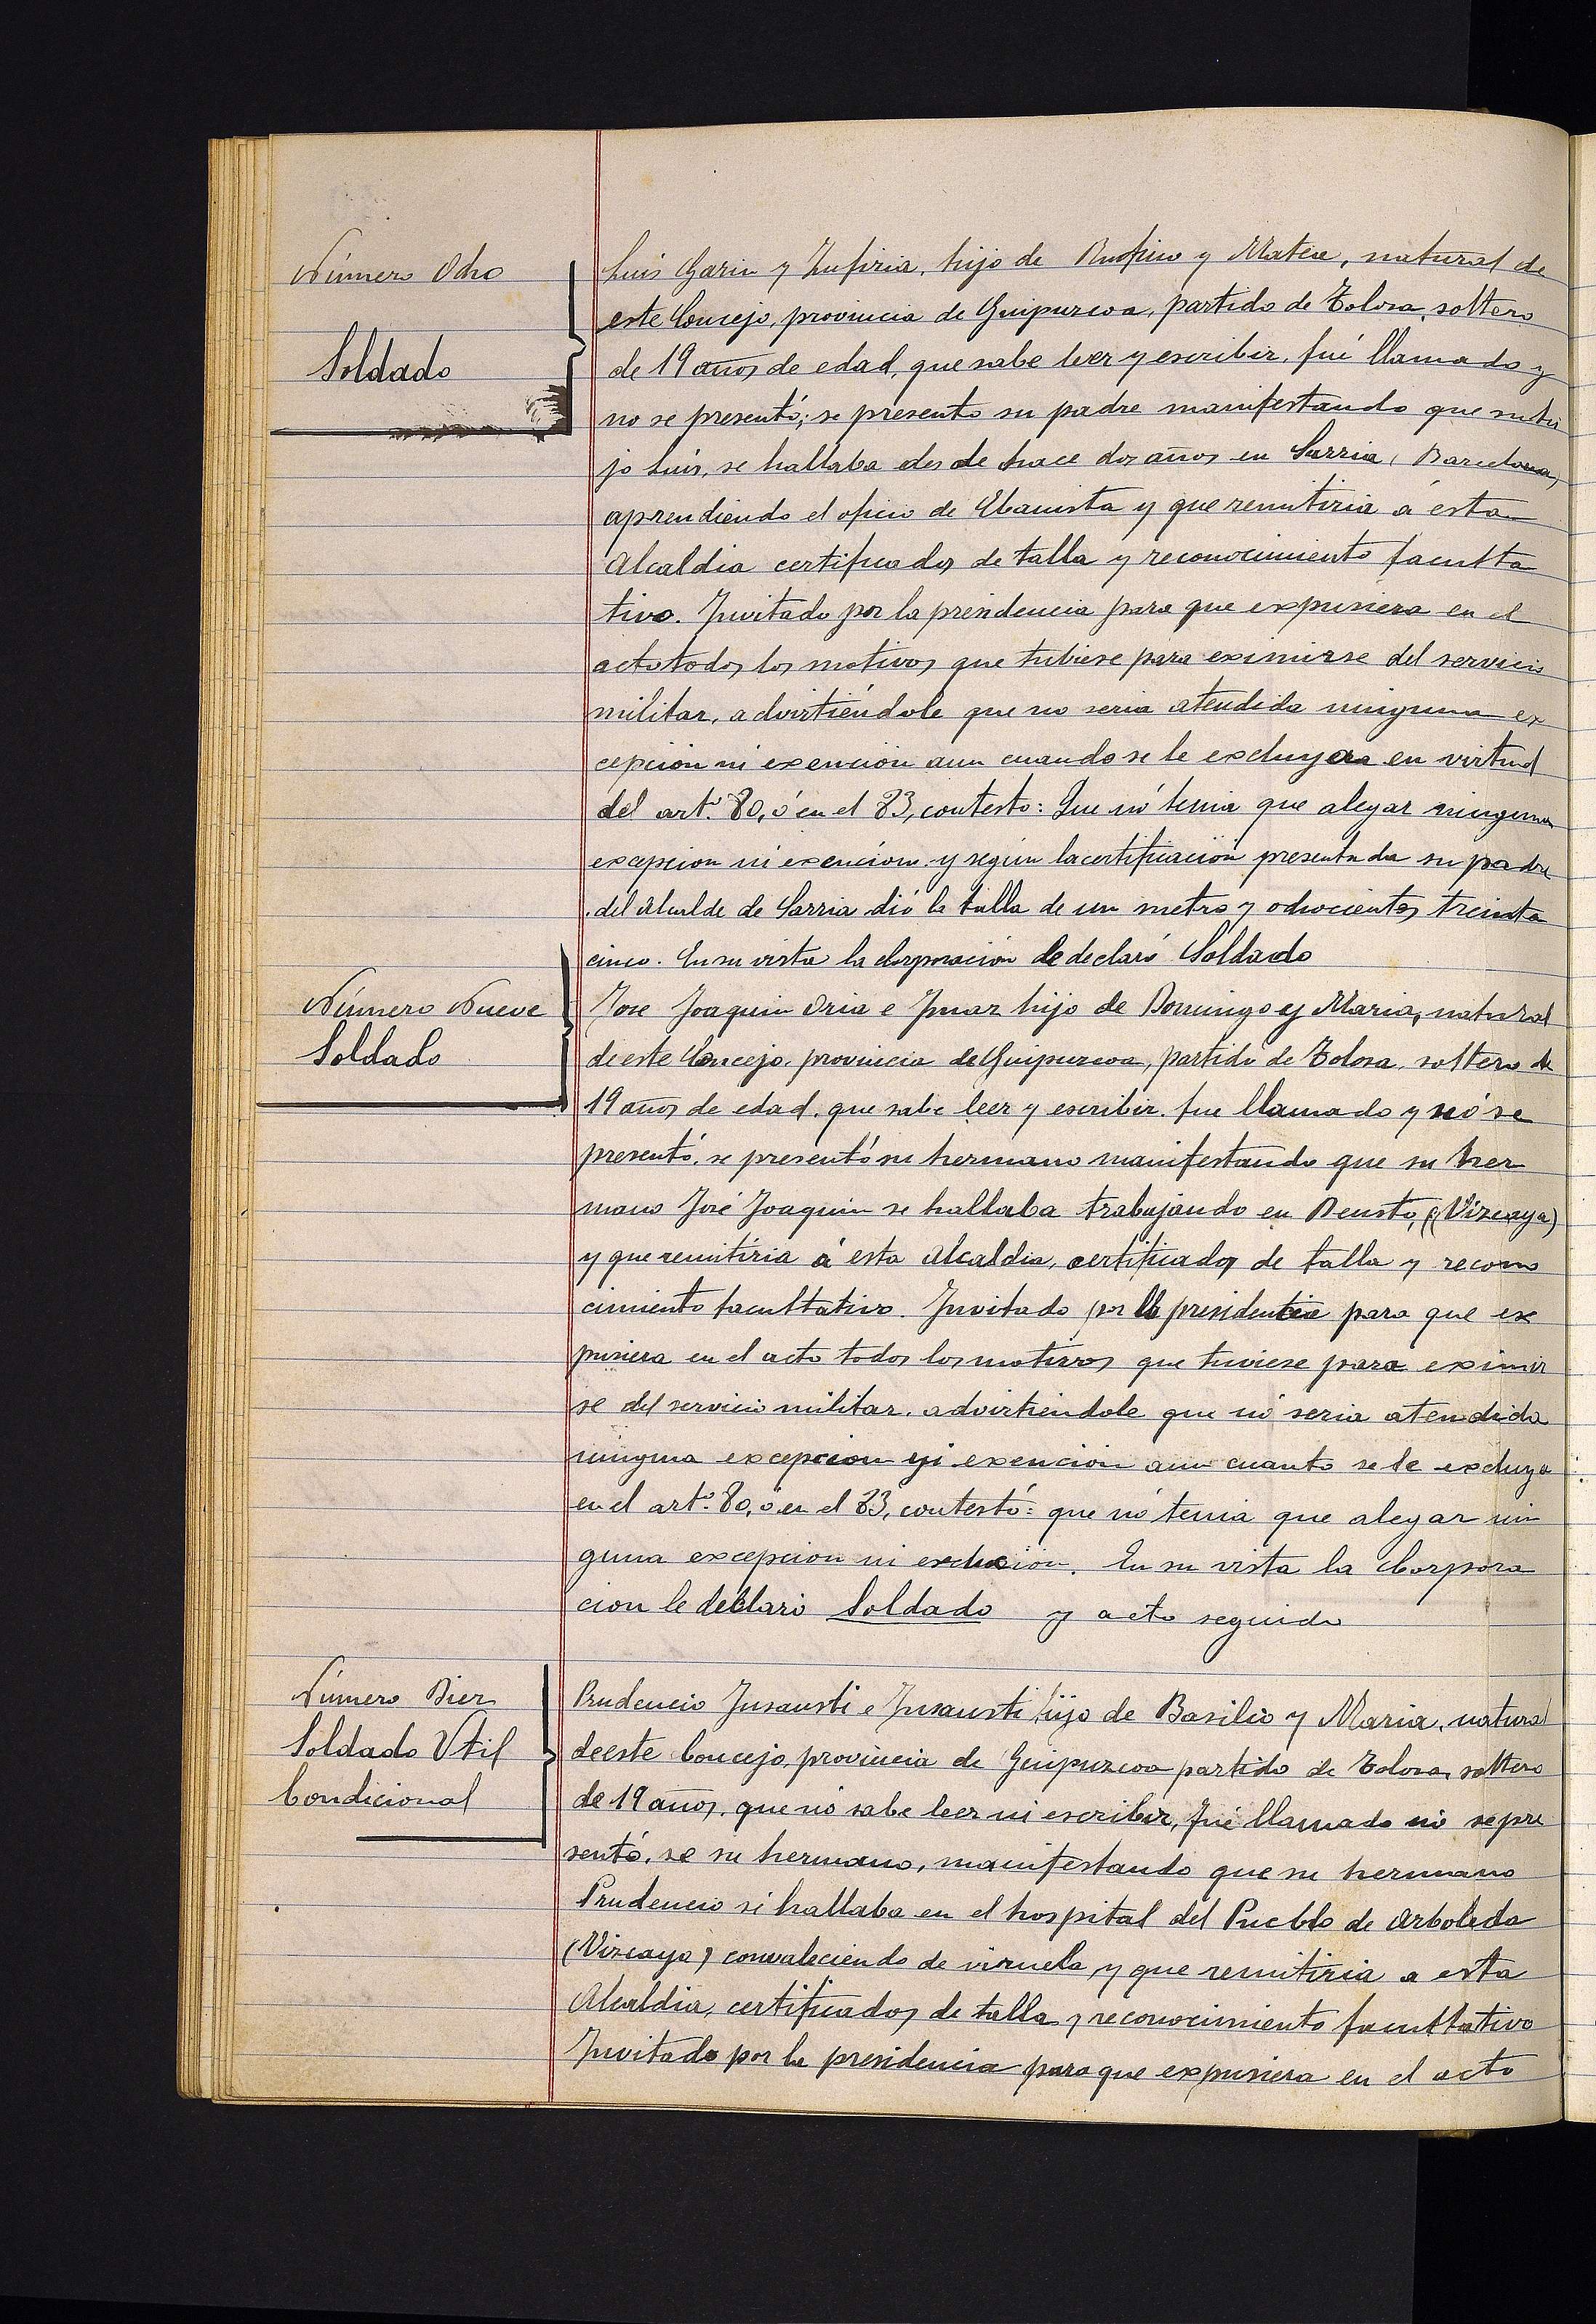 Número Ocho
Soldado
Luis Garin y Zufiria, hijo de Rufino y Matea, natural de
este Concejo, provincia de Guipuzcoa, partido de Tolosa, soltero
de 19 años de edad, que sabe leer y escribir, fué llamado y
no se presentó; se presento su padre manifestando que su hi
jo Luis, se hallaba desde hace dos años en Sarria, (Barcelona)
aprendiendo el oficio de Ebanista y que remitiria á esta
Alcaldia certificados de talla y reconocimiento faculta
tivo. Invitado por la presidencia para que expusiera en el
acto todos los motivos que tubiese para eximirse del servicio
militar, advirtiéndole que no seria atendida ninguna ex
cepción ni exención aun cuando se le excluyera en virtud
del artº 80, ó en el 83, contesto: Que nó tenia que alegar ninguna
excepcion ni exención y según la certificación presentada su padre
del Alcalde de Sarria dió la talla de un metro y ochocientos treinta
cinco. En su vista la Corporación le declaró Soldado
Número Nueve
Soldado
Jose Joaquin Oria e hijo de Domingo y Maria, natural
de este Concejo, provincia de Guipuzcoa, partido de Tolosa, soltero de
19 años de edad, que sabe leer y escribir, fue llamado y nó se
presentó, se presentó su hermano manifestando que su her
mano José Joaquin se hallaba trabajando en Deusto, (Vizcaya)
y que remitiria á esta Alcaldia, certificados de talla y recono
cimiento facultativo. Invitado por la presidencia para que ex
pusiera en el acto todos los motivos que tuviese para eximir
se del servicio militar, advirtiendole que nó seria atendida
ninguna excepcion ni exención aun cuanto se le excluya
en el artº 80, ó en el 83, contestó: que nó tenia que alegar nin
guna excepcion ni exclusión. En su vista la Corpora
cion le declaró Soldado y acto seguido
Número Diez
Soldado Util
Condicional
Prudencio Insausti e Insausti hijo de Basilio y Maria, natural
de este Concejo, provincia de Guipuzcoa partido de Tolosa, soltero
de 19 años, que nó sabe leer ni escribir, fué llamado nó se pre
sentó, se su hermano, manifestando que su hermano
Prudencio si hallaba en el hospital del Pueblo de Arboleda
(Vizcaya) convaleciendo de viruela y que remitiria a esta
Alcaldia, certificados de talla y reconocimiento facultativo
Invitado por la presidencia para que expusiera en el acto